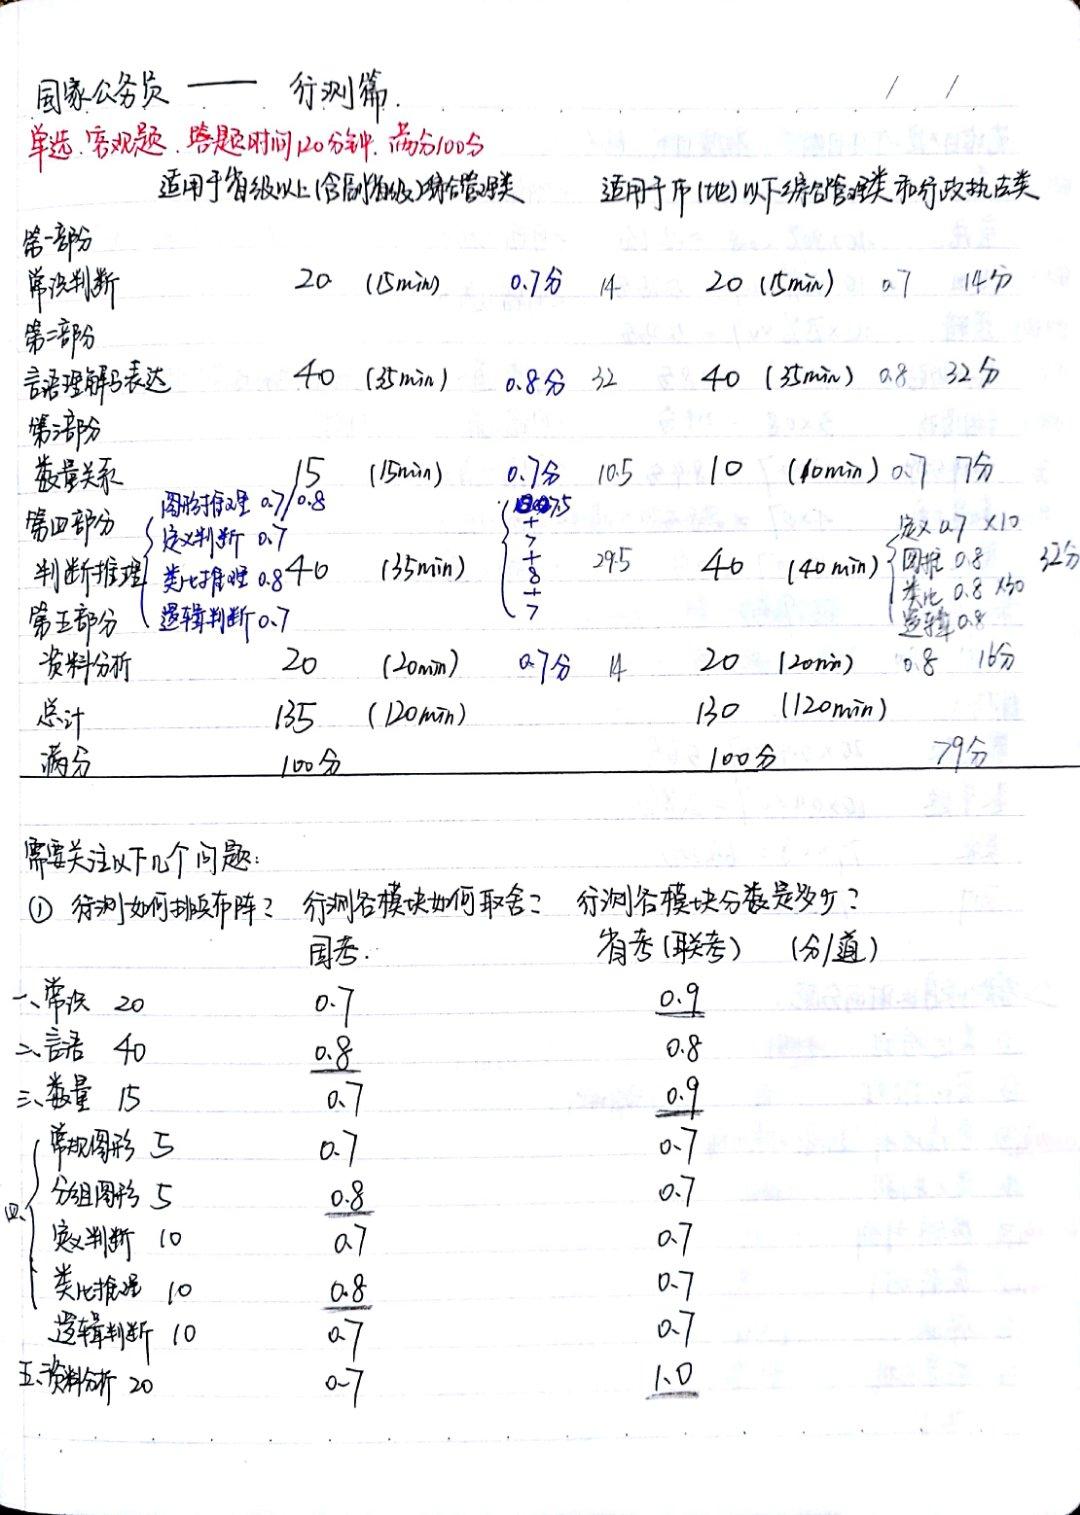 国家公务员 —— 行测篇.
/ /
单选.客观题.答题时间120分钟.满分100分
适用于省级以上(含副省级)综合管理类 适用于市(地)以下综合管理类和行政执法类
第一部分
常识判断 20 (15min) 0.7分 14 20 (15min) 0.7 14分
第二部分
言语理解与表达 40 (35min) 0.8分 32 40 (35min) 0.8 32分
第三部分
数量关系 15 (15min) 0.7分 10.5 10 (10min) 0.7 7分
第四部分
图形推理 0.7/0.8
定义判断 0.7
判断推理 类比推理 0.8 40 (35min) 7.5+7+8+7 29.5 40 (40min) 32分
逻辑判断 0.7
定义 0.7 ×10
图推 0.8
类比 0.8 ×30
逻辑 0.8
第五部分
资料分析 20 (20min) 0.7分 14 20 (20min) 0.8 16分
总计 135 (120min) 130 (120min)
满分 100分 100分 79分
需要关注以下几个问题:
① 行测如何排兵布阵? 行测各模块如何取舍? 行测各模块分数是多少?
国考. 省考(联考) (分/道)
一、常识 20 0.7 0.9
二、言语 40 0.8 0.8
三、数量 15 0.7 0.9
四、 常规图形 5 0.7 0.7
分组图形 5 0.8 0.7
定义判断 10 0.7 0.7
类比推理 10 0.8 0.7
逻辑判断 10 0.7 0.7
五、资料分析 20 0.7 1.0